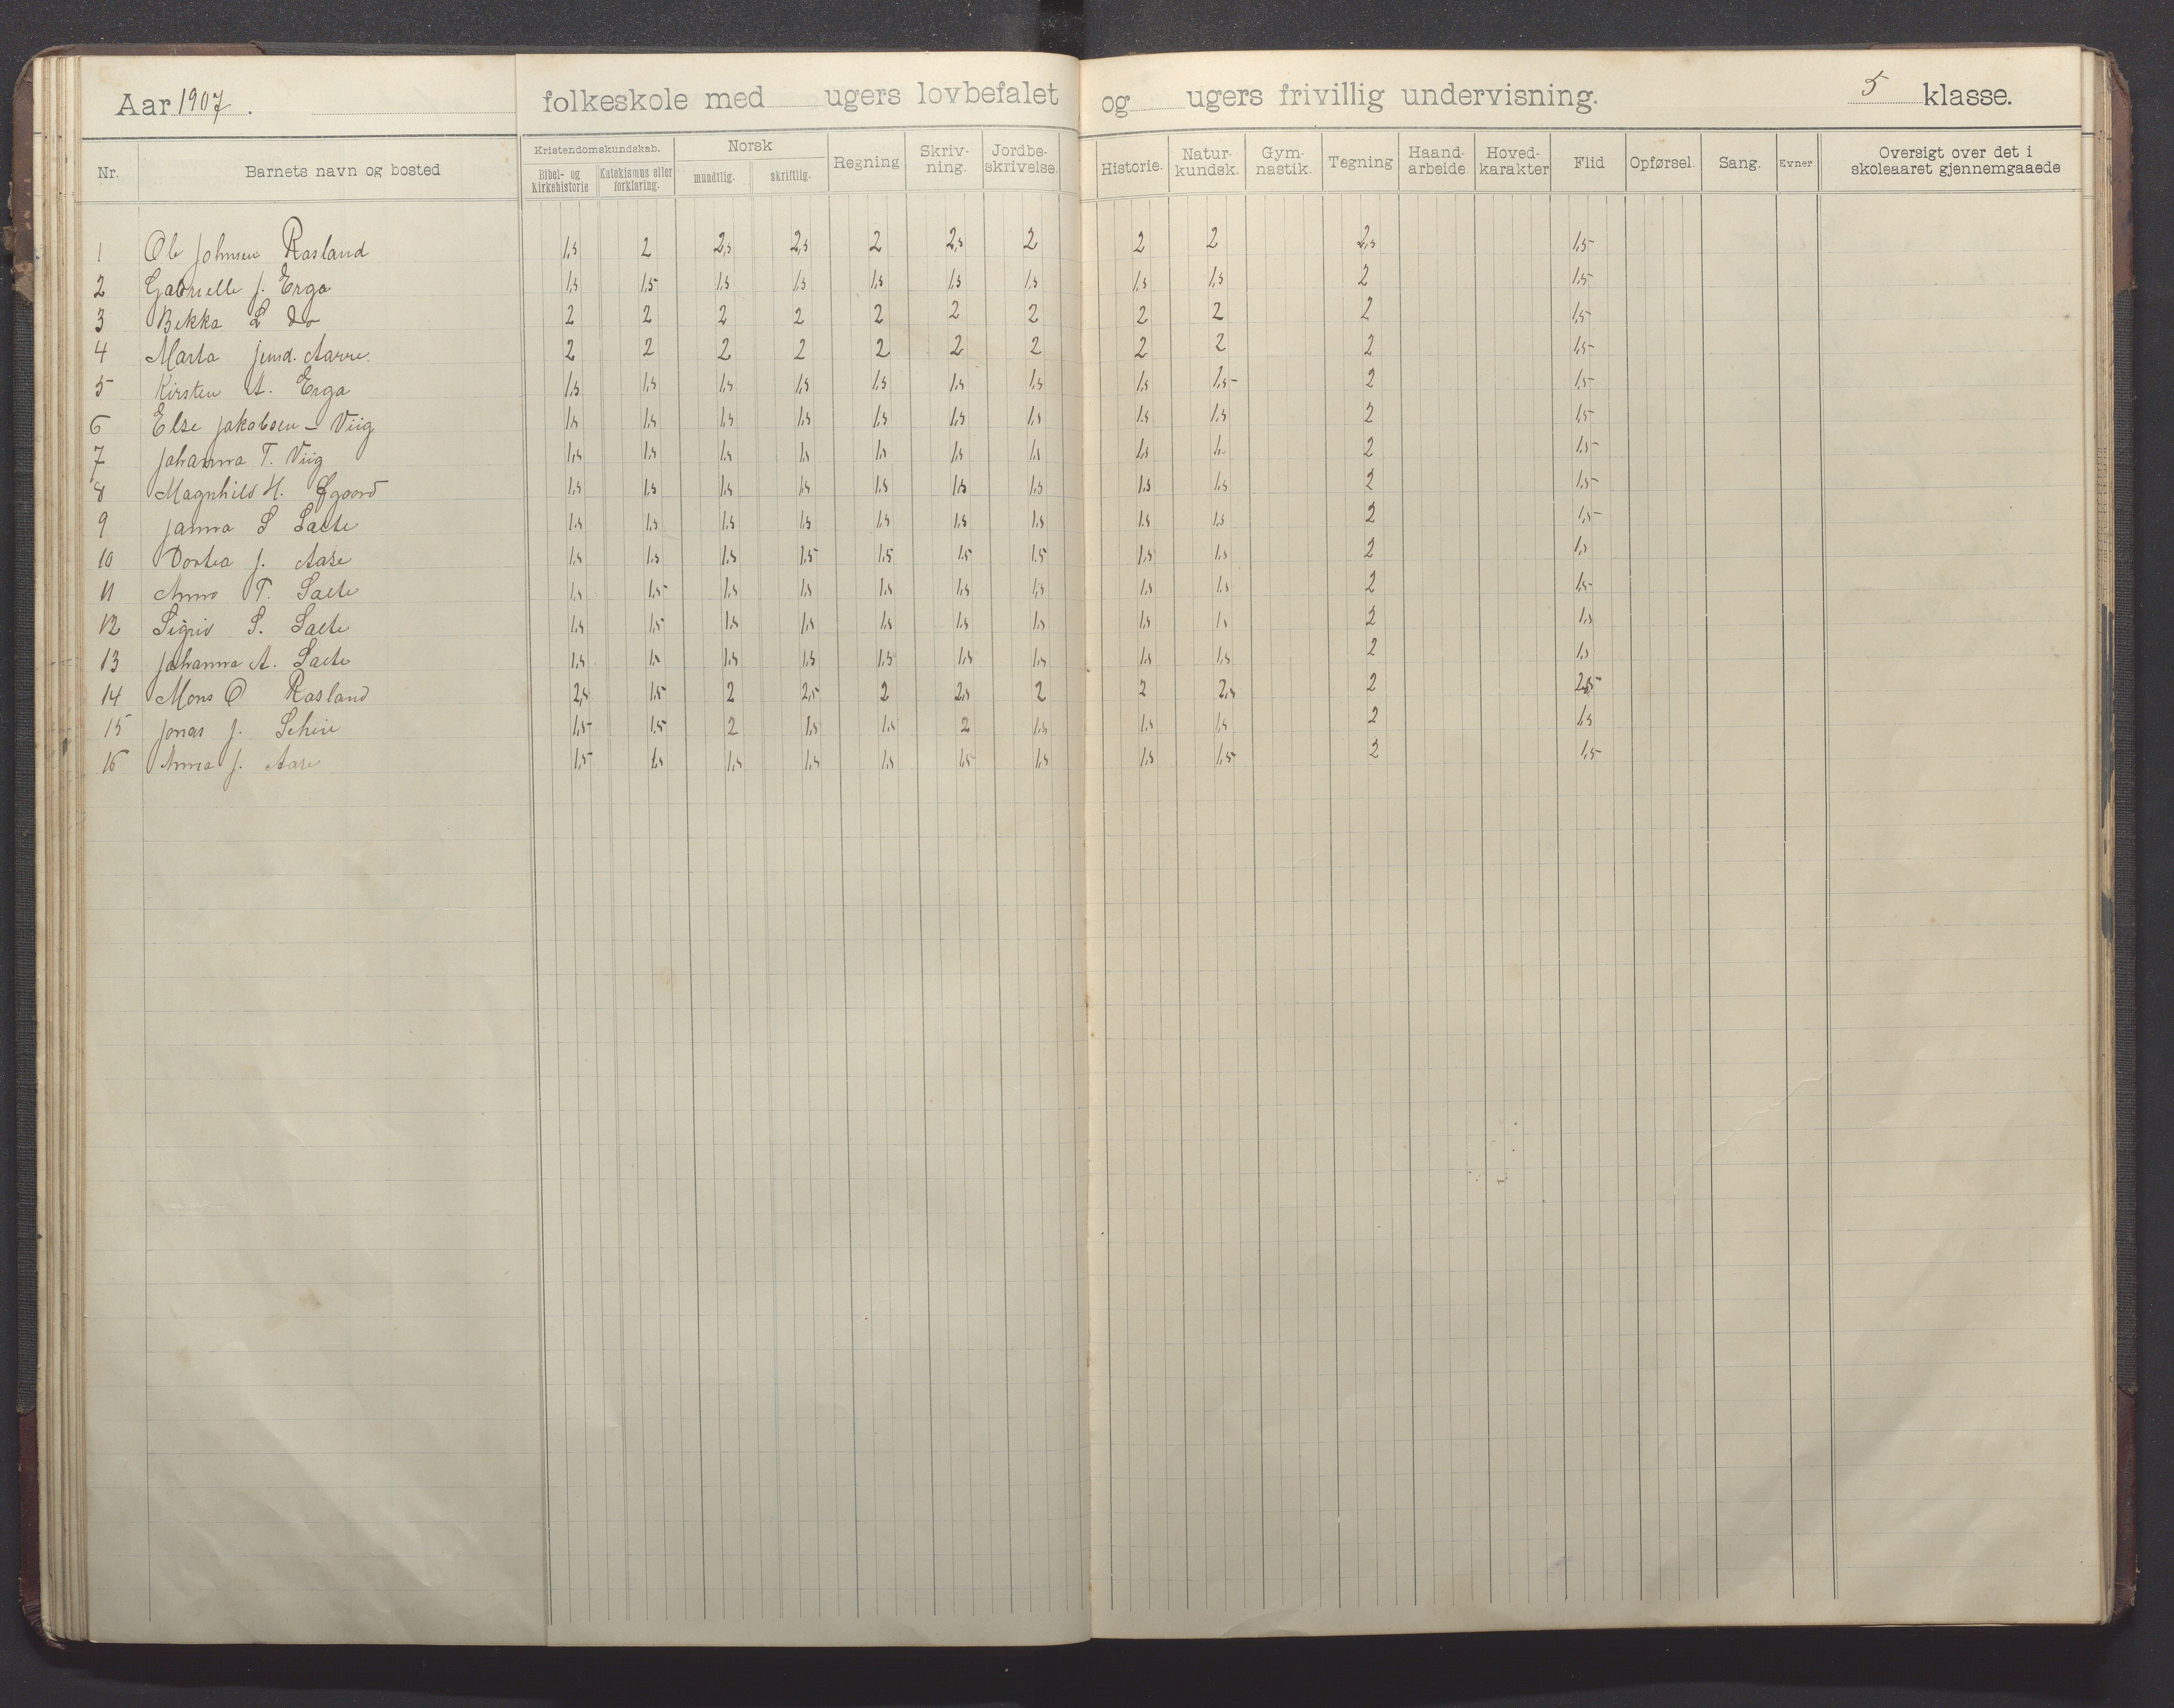 Aar 1907. folkeskole med ugers lovbefalet og ugers frivillig undervisning. 5 klasse.
Nr. Barnets navn og bosted Kristendomskundskab. Bibel- og Kirkehistorie Katekismus eller forklaring. Norsk mundtlig. skriftlig. Regning Skriv-ning. Jordbe-skrivelse. Historie. Natur-kundsk. Gym-nastik. Tegning Haand-arbeide. Hoved-karakter Flid Opførsel. Sang. Evner Oversigt over det i skoleaaret gjennemgaaede
1 Ole Johnsen Rasland 1,5 2 2,5 2,5 2 2,5 2 2 2 2,5 1,5
2 Gabrielle J. Erga 1,5 1,5 1,5 1,5 1,5 1,5 1,5 1,5 1,5 2 1,5
3 Bekka L do 2 2 2 2 2 2 2 2 2 2 1,5
4 Marta 2 2 2 2 2 2 2 2 2 2 1,5
5 Kirsten A. Erga 1,5 1,5 1,5 1,5 1,5 1,5 1,5 1,5 1,5 2 1,5
6 Else Jakobsen - Viig 1,5 1,5 1,5 1,5 1,5 1,5 1,5 1,5 1,5 2 1,5
7 Johanna T. Viig 1,5 1,5 1,5 1,5 1,5 1,5 1,5 1,5 1, 2 1,5
8 Magnhild H. 1,5 1,5 1,5 1,5 1,5 1,5 1,5 1,5 1,5 2 1,5
9 Janna S Salte 1,5 1,5 1,5 1,5 1,5 1,5 1,5 1,5 1,5 2 1,5
10 Dortea J. Aase 1,5 1,5 1,5 1,5 1,5 1,5 1,5 1,5 1,5 2 1,5
11 Anna T. Salte 1,5 1,5 1,5 1,5 1,5 1,5 1,5 1,5 1,5 2 1,5
12 Sigrid S. Salte 1,5 1,5 1,5 1,5 1,5 1,5 1,5 1,5 1,5 2 1,5
13 Johanna A. Salte 1,5 1,5 1,5 1,5 1,5 1,5 1,5 1,5 1,5 2 1,5
14 Mons O Rasland 2,5 1,5 2 2,5 2 2,5 2 2 2,5 2 2,5
15 Jonas J. 1,5 1,5 2 1,5 1,5 2 1,5 1,5 1,5 2 1,5
16 Anna J. Aase 1,5 1,5 1,5 1,5 1,5 1,5 1,5 1,5 1,5 2 1,5